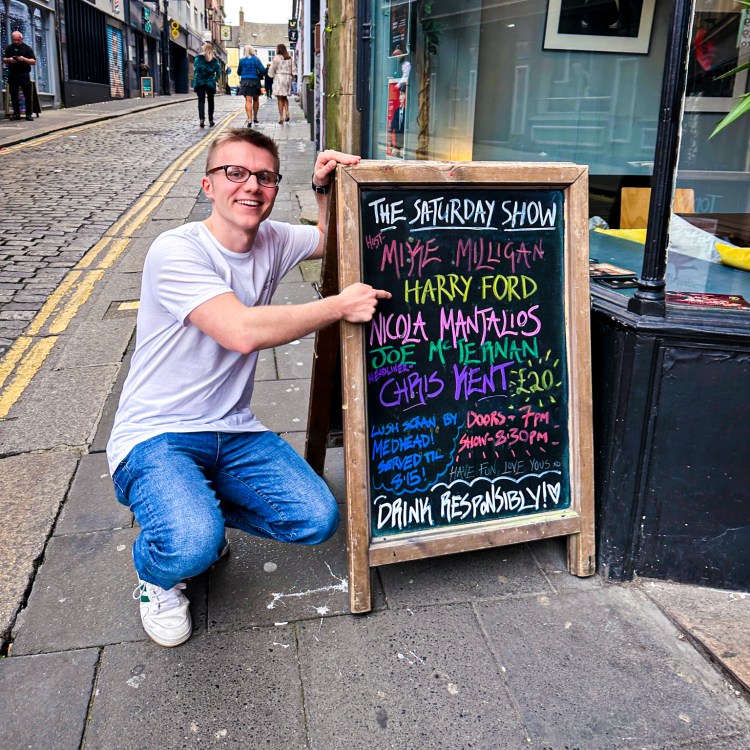 THE SATURDAY SHOW
HOST-
MIKE MILLIGAN
HARRY FORD
NICOLA MANTALIOS
JOE McTERNAN
HEADLINER-
CHRIS KENT £20
LUSH SCRAN BY
MEDHEAD!
SERVED TIL
8:15!
DOORS-7PM
SHOW-8:30PM
HAVE FUN, LOVE YOUS xo
DRINK RESPONSIBLY!♡